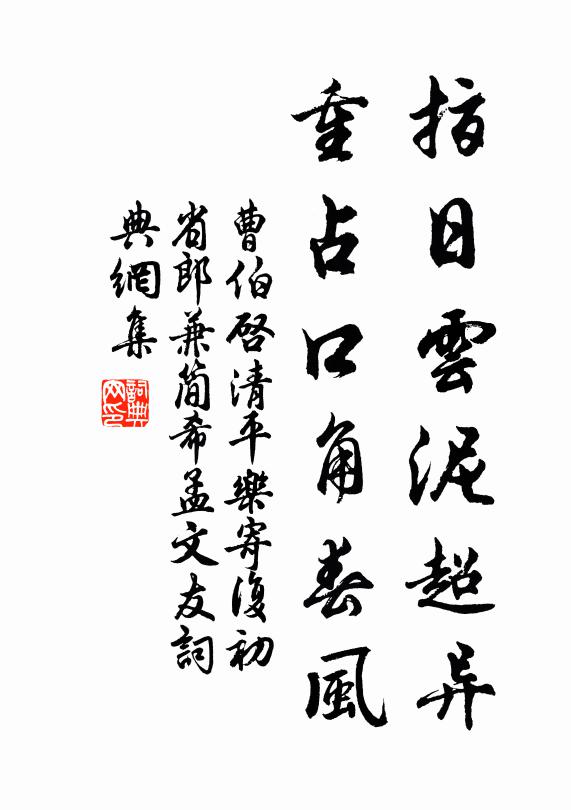 指日雲泥超异
重占口角春風
曹伯啓清平樂寄復初
省郎兼簡希孟文友詞
典網集
詞典網印